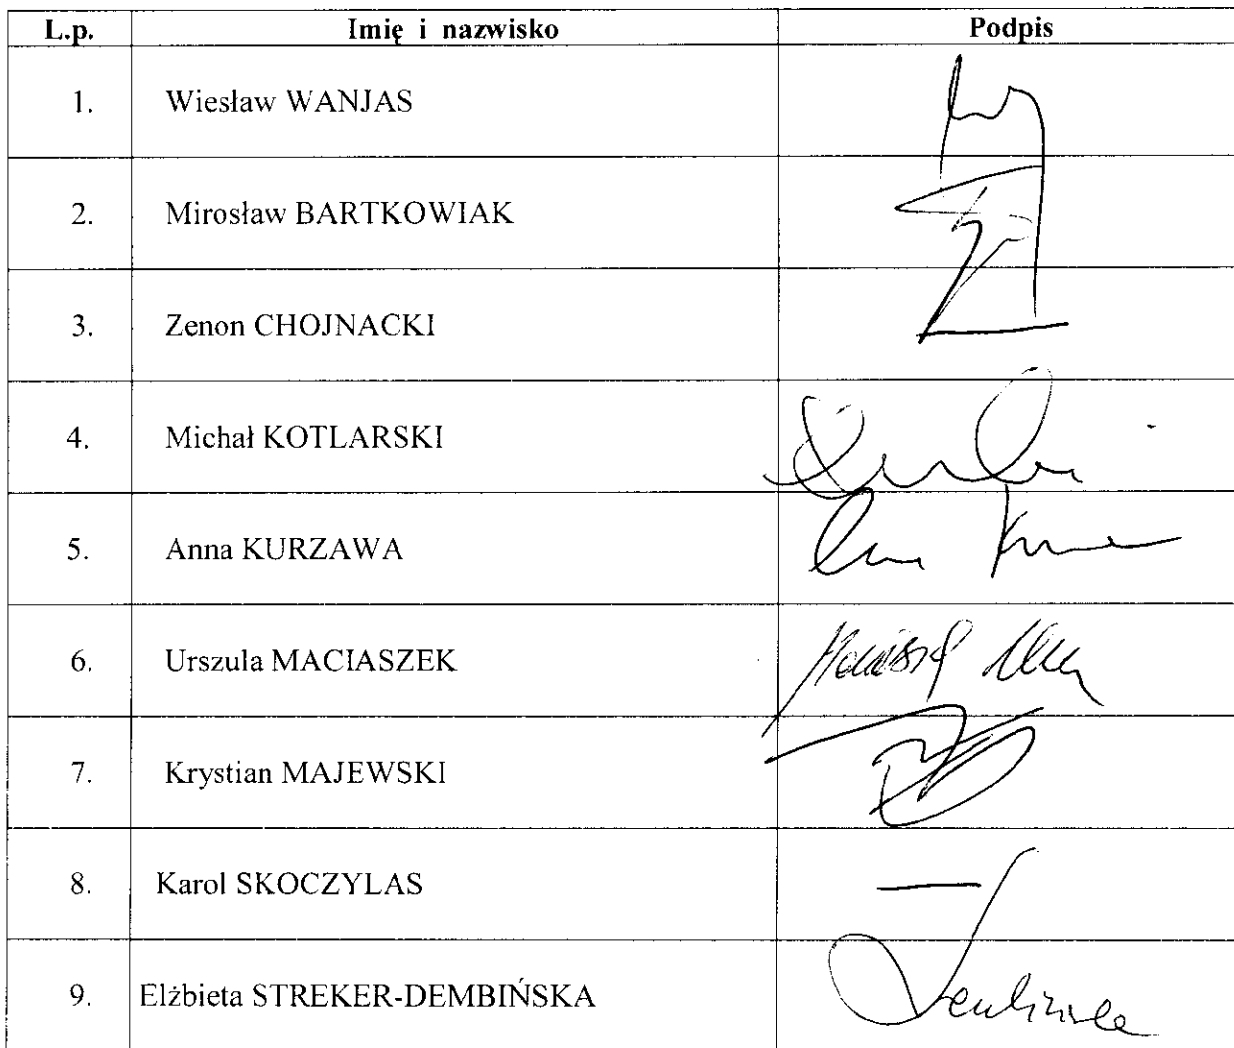 L.p. Imię i nazwisko Podpis
1. Wiesław WANJAS
2. Mirosław BARTKOWIAK
3. Zenon CHOJNACKI
4. Michał KOTLARSKI
5. Anna KURZAWA
6. Urszula MACIASZEK
7. Krystian MAJEWSKI
8. Karol SKOCZYLAS —
9. Elżbieta STREKER-DEMBIŃSKA